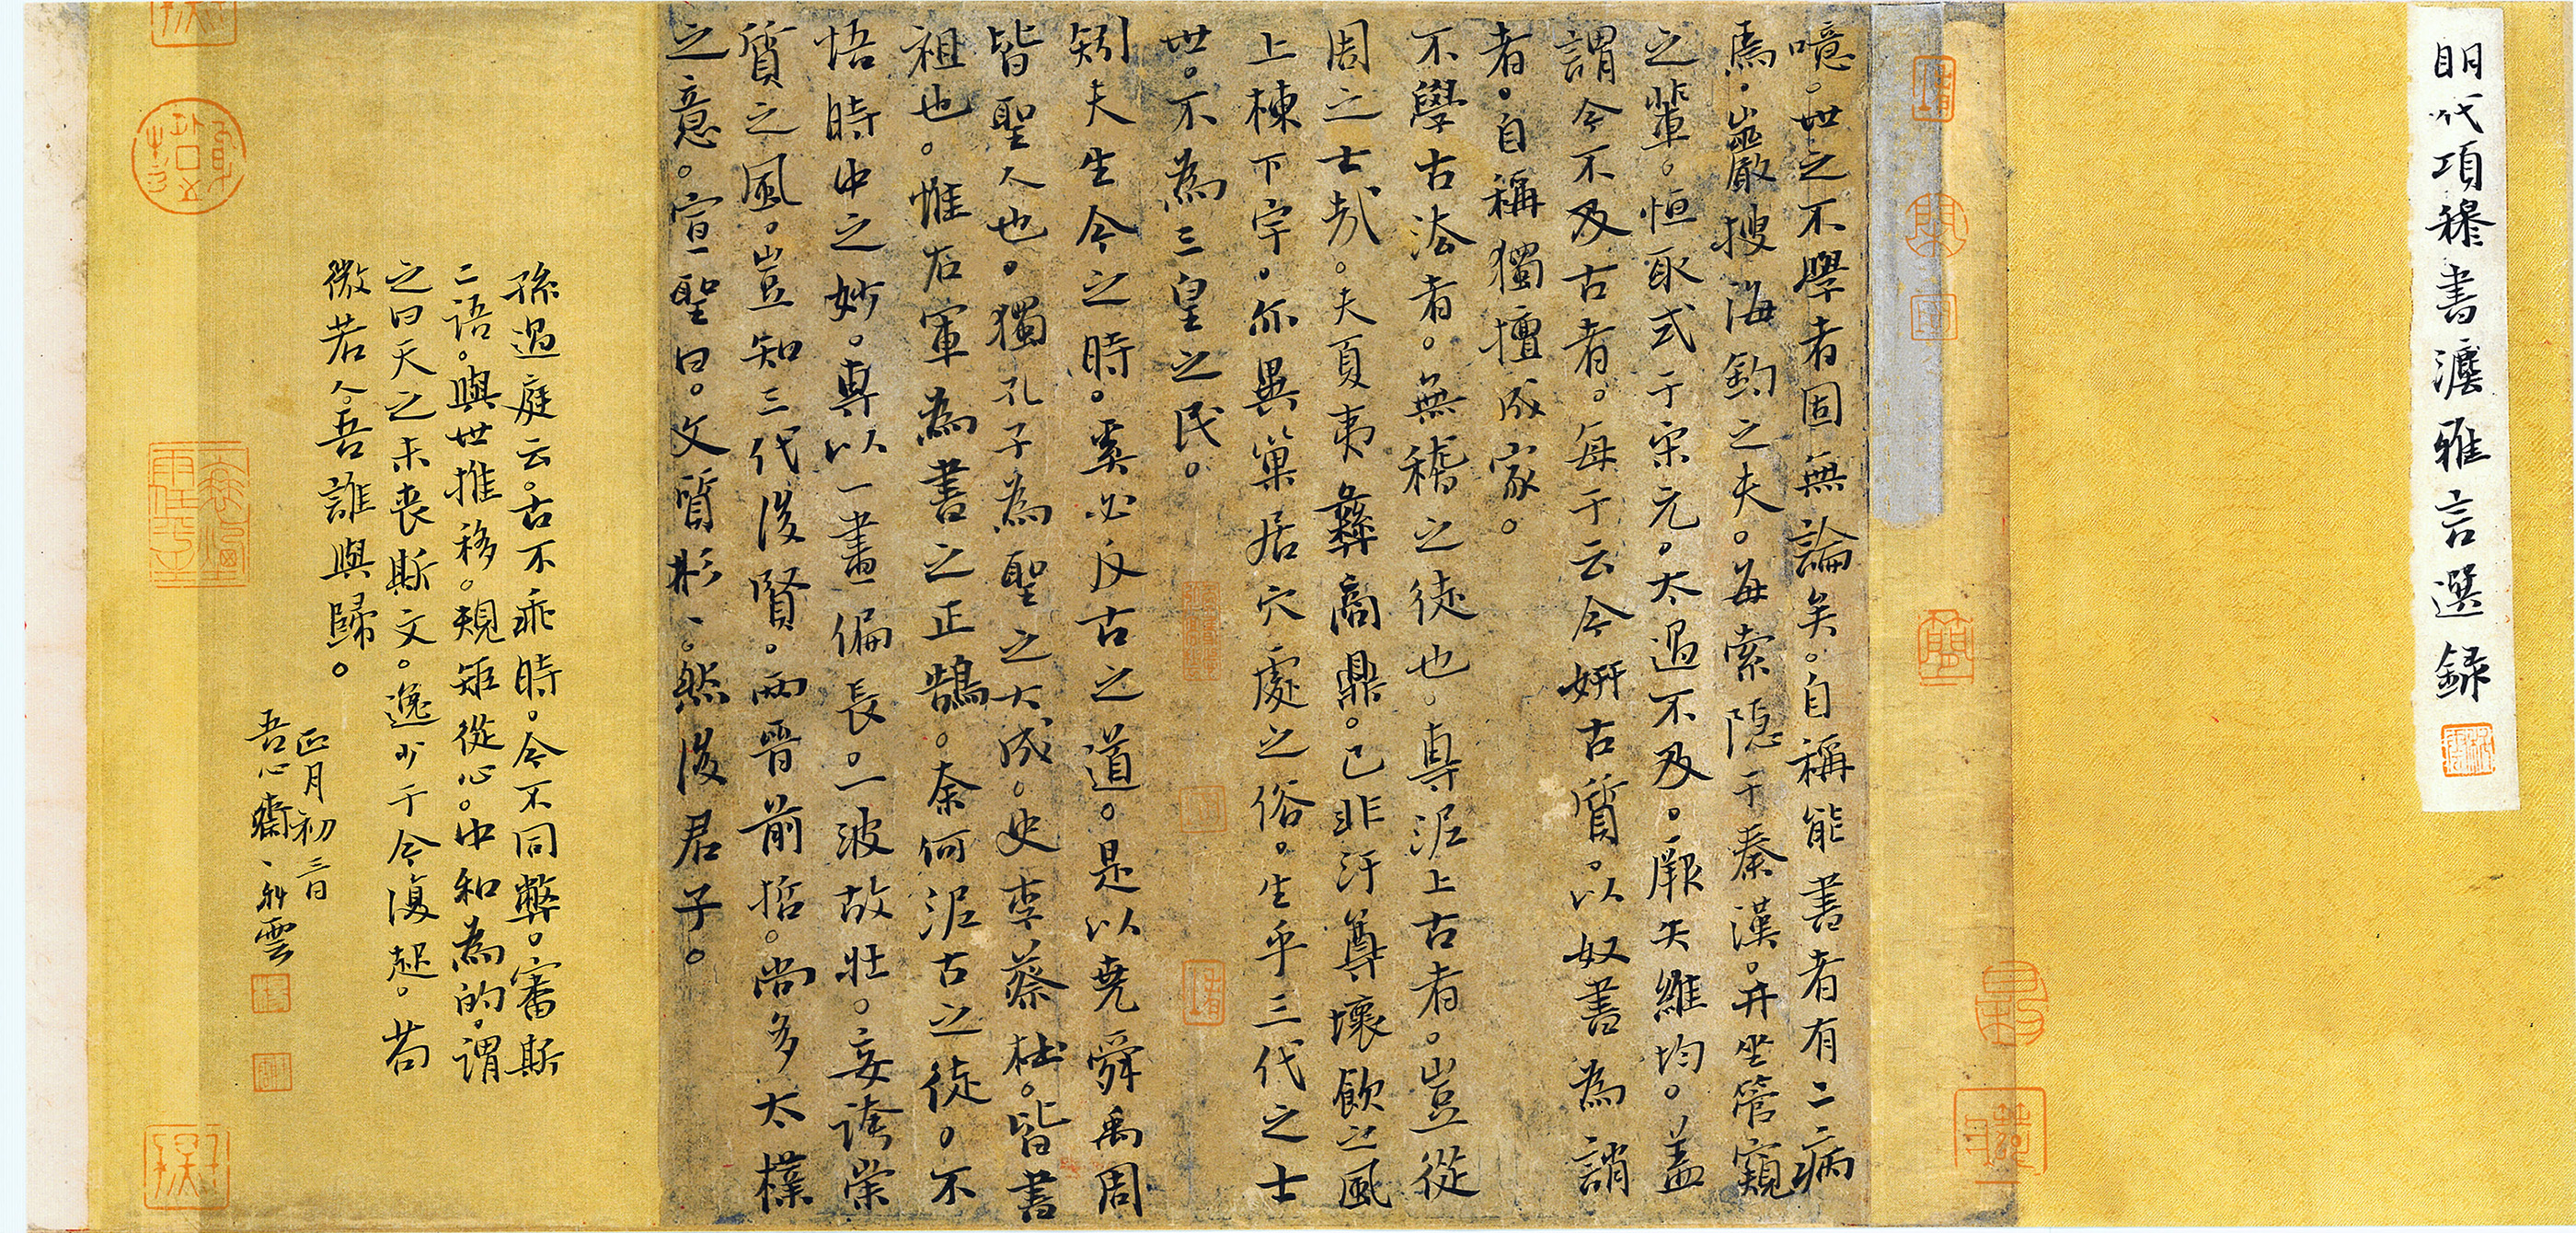 明代項穆書灋雅言選録
噫。世之不學者固無論矣。自稱能書者有二病
焉。巖搜海釣之夫。每索隱于秦漢。井坐管窺
之輩。恒取式于宋元。太過不及。厥失維均。盖
謂今不及古者。每于云今妍古質。以奴書為誚
者。自稱獨擅成家。
不學古法者。無稽之徒也。專泥上古者。豈從
周之士哉。夫夏夷彝商鼎。已非汙尊壞飲之風
上棟下宇。亦異巢居穴處之俗。生乎三代之士
世。不為三皇之民。
矧夫生今之時。奚必反古之道。是以堯舜禹周
皆聖人也。獨孔子為聖之大成。史李蔡杜。皆書
祖也。惟右軍為書之正鵠。奈何泥古之徒。不
悟時中之妙。專以一畫偏長。一波故壯。妄誇崇
質之風。豈知三代後賢。兩晉前哲。尚多太樸
之意。宣聖曰。文質彬〻。然後君子。
孫過庭云。古不乖時。今不同弊。審斯
二語。與世推移。規矩從心。中和為的。謂
之曰天之未丧斯文。逸少于今復起。苟
微若人。吾誰與歸。
正月初三日
吾心齋